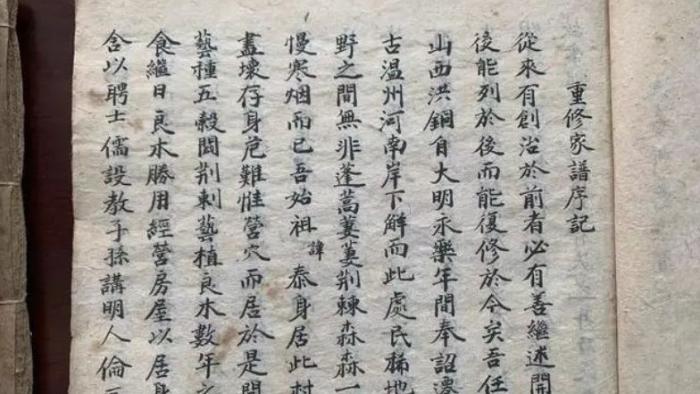 重修家譜序記
從來有創治於前者必有善繼述開
後能列於後而能復修於今矣吾任
山西洪銅自大明永樂年間奉詔遷
古温州河南岸下解而此處民稀地
野之間無非蓬蒿萋萋荆棘森森一
慢寒烟而已吾始祖諱泰身居此村
盡壞存身危難惟營穴而居於是開
藝種五榖闢荆刺藝植良木數年之
食繼日良木勝用經營房屋以居身
含以聘士儒設教子孫講明人倫